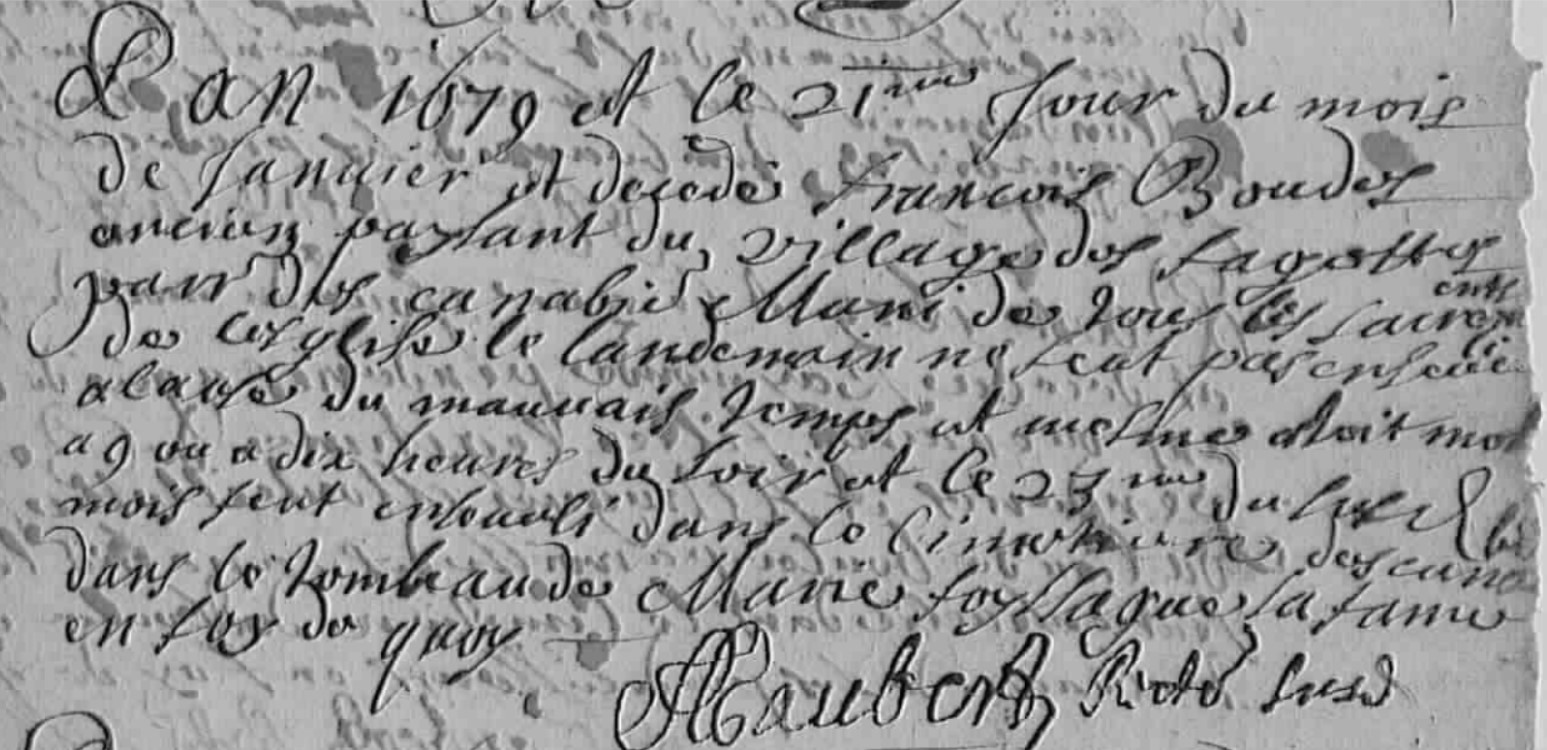 L'an 1679 et le 21ime Jour du mois
de Janvier et decede francois Boudes
ancien paysant du village des
parr des canabie Muni de tous les sacrements
de lesglise le landemain ne feut pas enseveli
a cause du mauvais temps et mesme estoit mort
a 9 ou a dix heures du soir et le 23me du susd
mois feut ensevely dans le Cimetiere des cana bie
dans le tombeau de Marie sa fame
en foy de quoy
Rectr susd